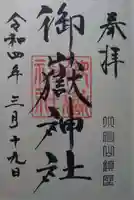 奉拝
御嶽神社
令和四年三月十九日